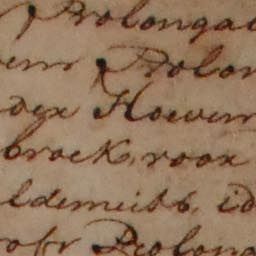 Prolonga
Prolon
der Hoeven
broek, voor
ldemeits, id
Prolong